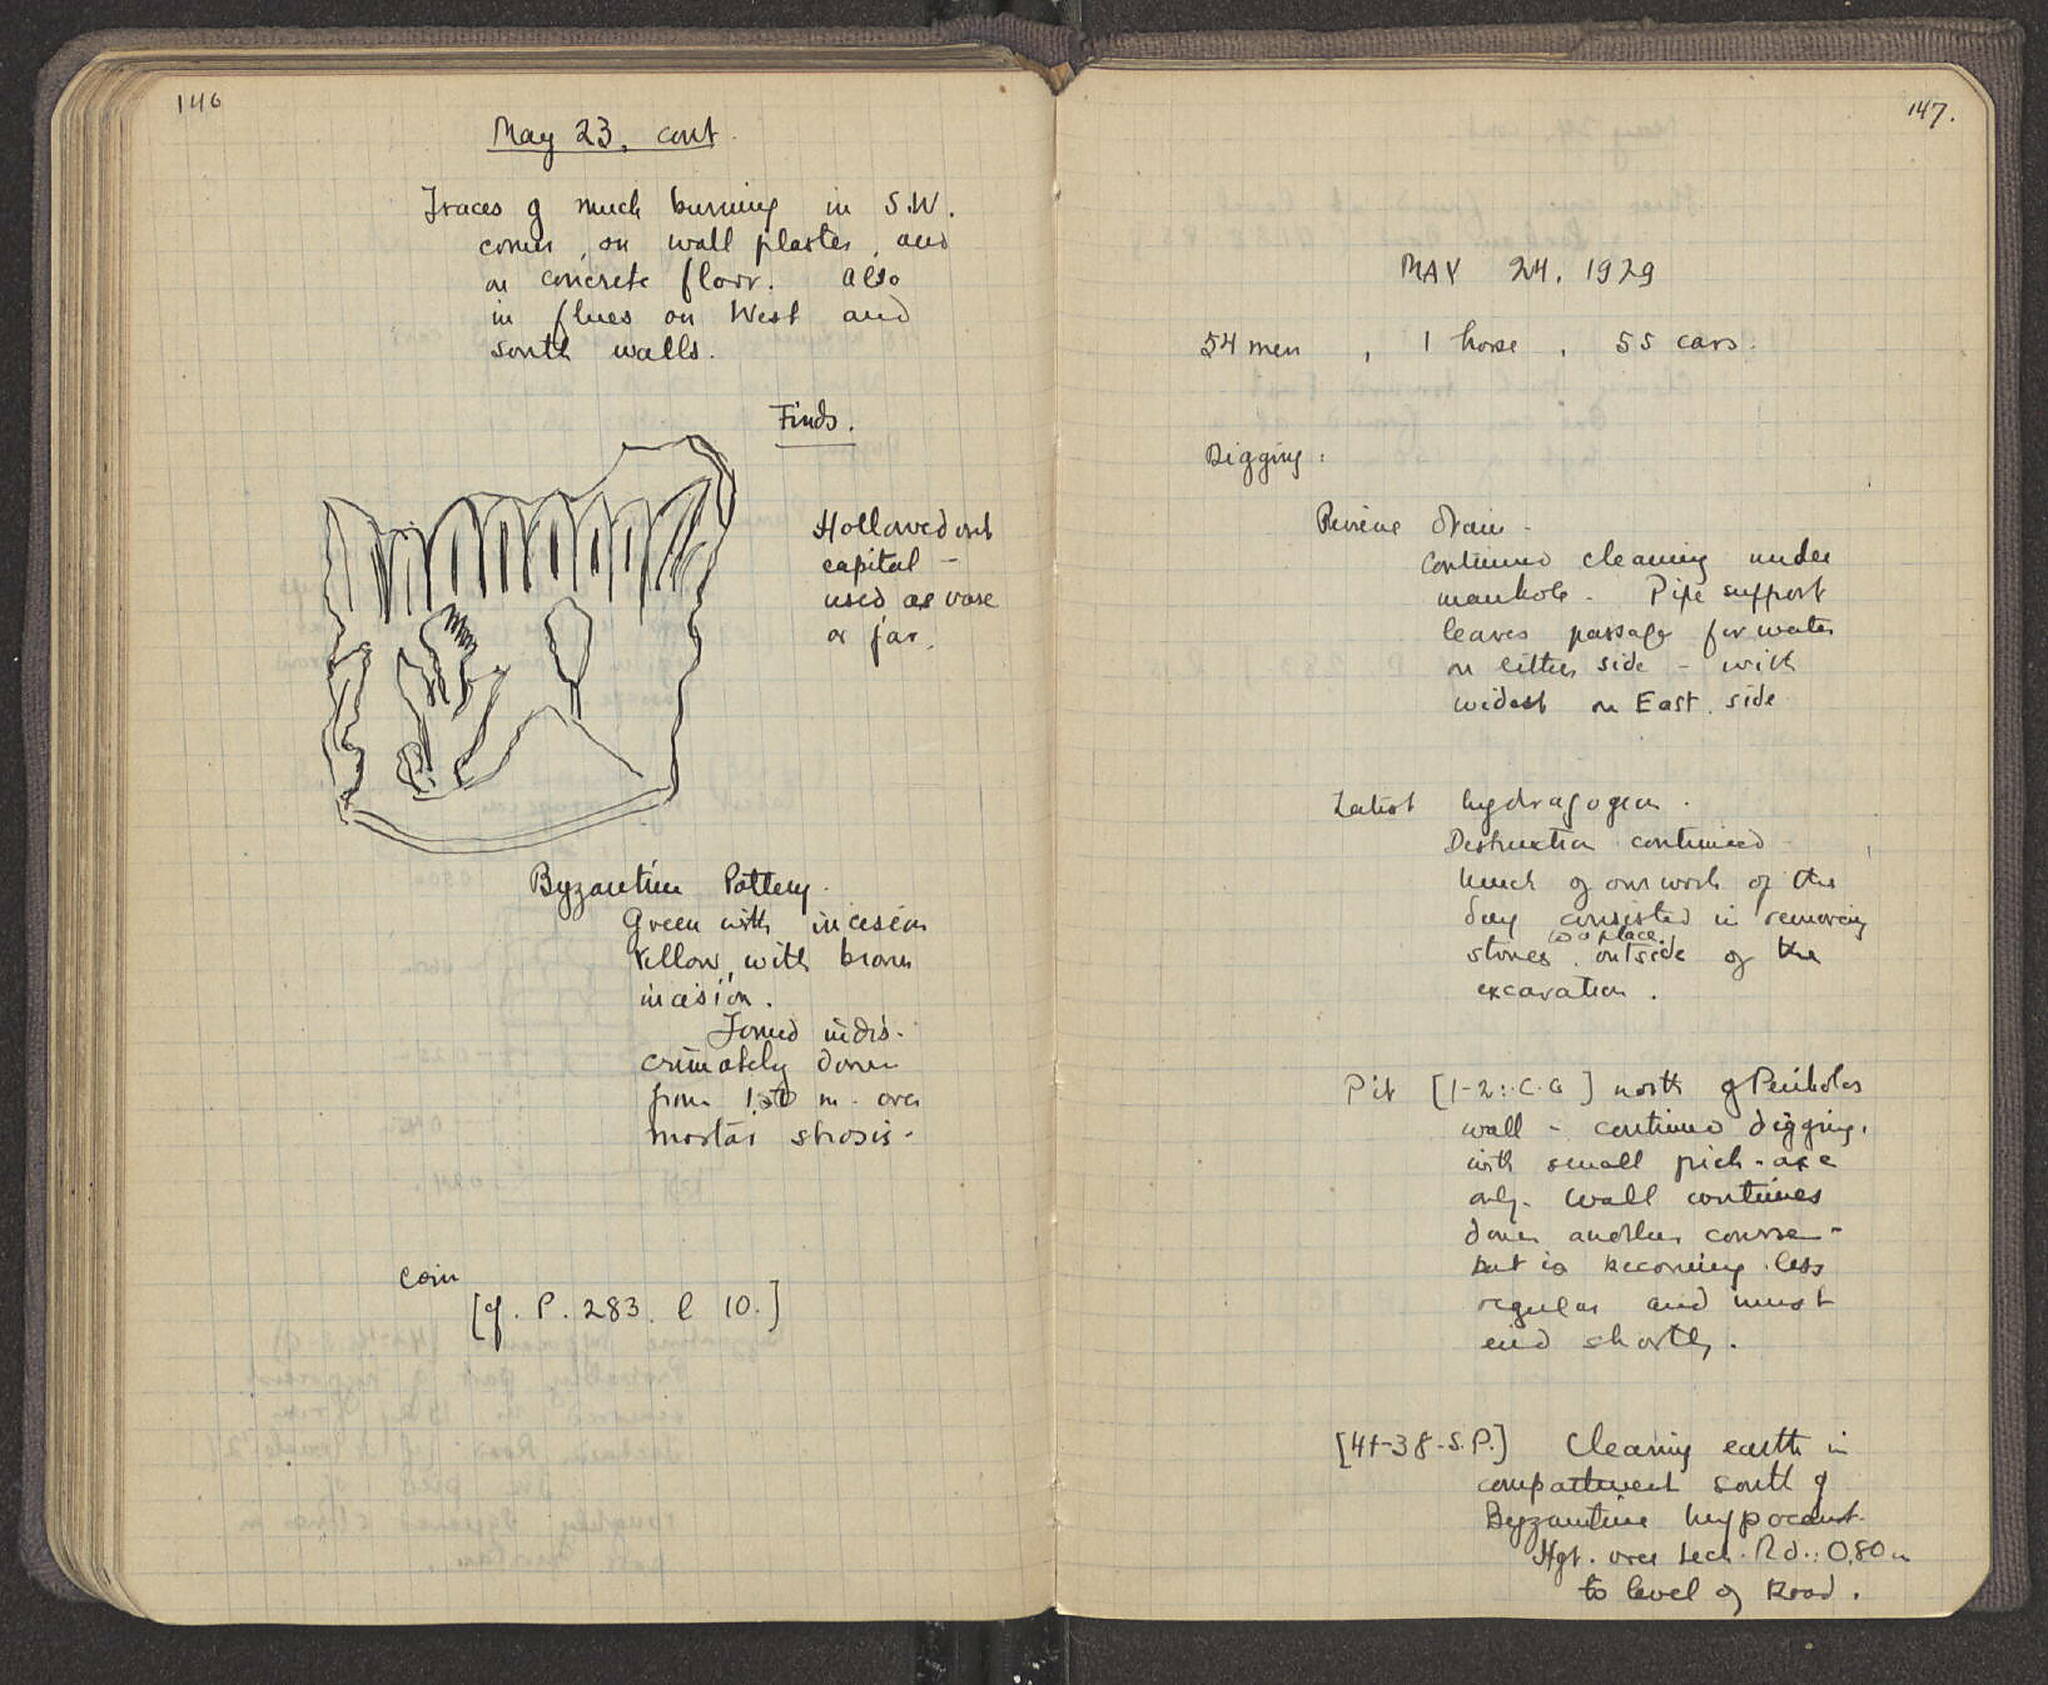 146
May 23, cont.
Traces of much burning in S.W.
corner, on wall plaster, and
on concrete floor. Also
in flues on West and
South walls.
Finds.
Hollowed out
capital -
used as vase
or jar.
Byzantine Pottery.
Green with incision
Yellow, with brown
incision.
Found indis-
criminately down
from 1.50 m. over
mortar strosis.
Coin
[cf. P. 283. l 10.]
147.
MAY 24, 1929
54 men, 1 horse, 55 cars.
Digging:
Peirene drain -
Continued cleaning under
manhole. Pipe support
leaves passage for water
on either side - with
widest on East side
Latest hydragogion.
Destruction continued
Much of our work of the
day consisted in removing
stones to place outside of the
excavation.
Pit [1-2:C-G] north of Peribolos
wall - continued digging,
with small pick-axe
only. Wall continues
down another course -
but is becoming less
regular and must
end shortly.
[41-38-S.P.] Clearing earth in
compartment south of
Byzantine hypocaust.
Hgt. over Lech. Rd.: 0.80 m
to level of Road.